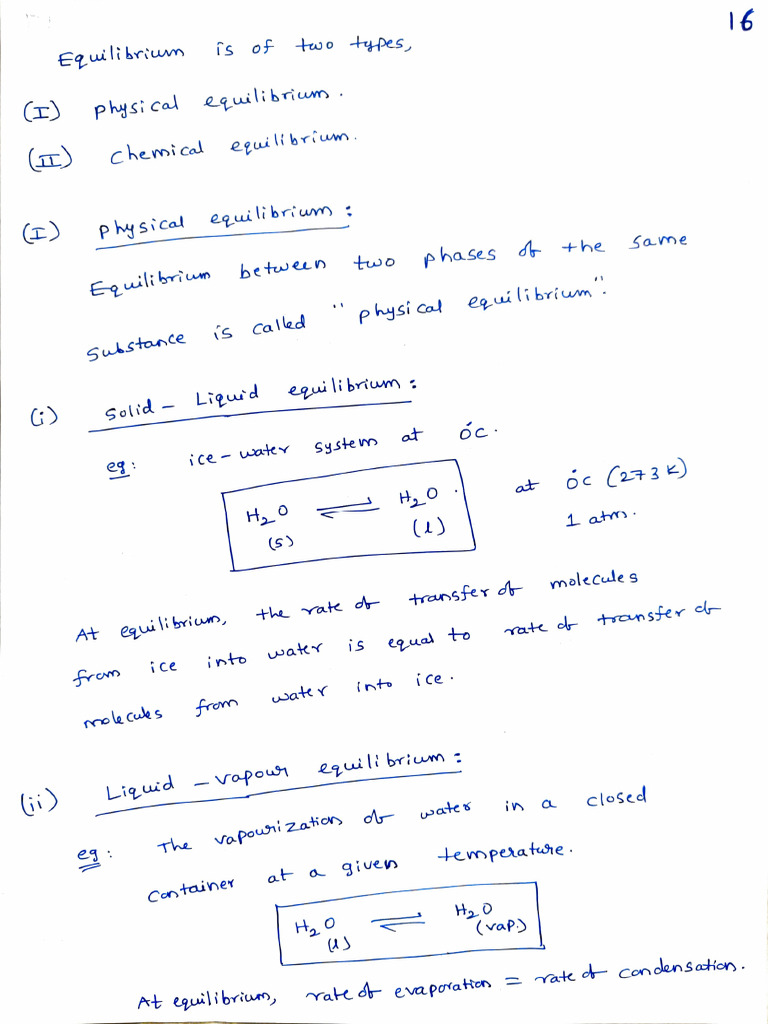 16
Equilibrium is of two types,
(I) physical equilibrium.
(II) chemical equilibrium.
(I) physical equilibrium :
Equilibrium between two phases of the same
substance is called "physical equilibrium".
(i) Solid - Liquid equilibrium :
eg : ice - water system at 0°c.
H₂O ⇌ H₂O . at 0°c (273 K)
(s) (l) 1 atm.
At equilibrium, the rate of transfer of molecules
from ice into water is equal to rate of transfer of
molecules from water into ice.
(ii) Liquid - vapour equilibrium :
eg : The vapourization of water in a closed
container at a given temperature.
H₂O ⇌ H₂O
(l) (vap.)
At equilibrium, rate of evaporation = rate of condensation.